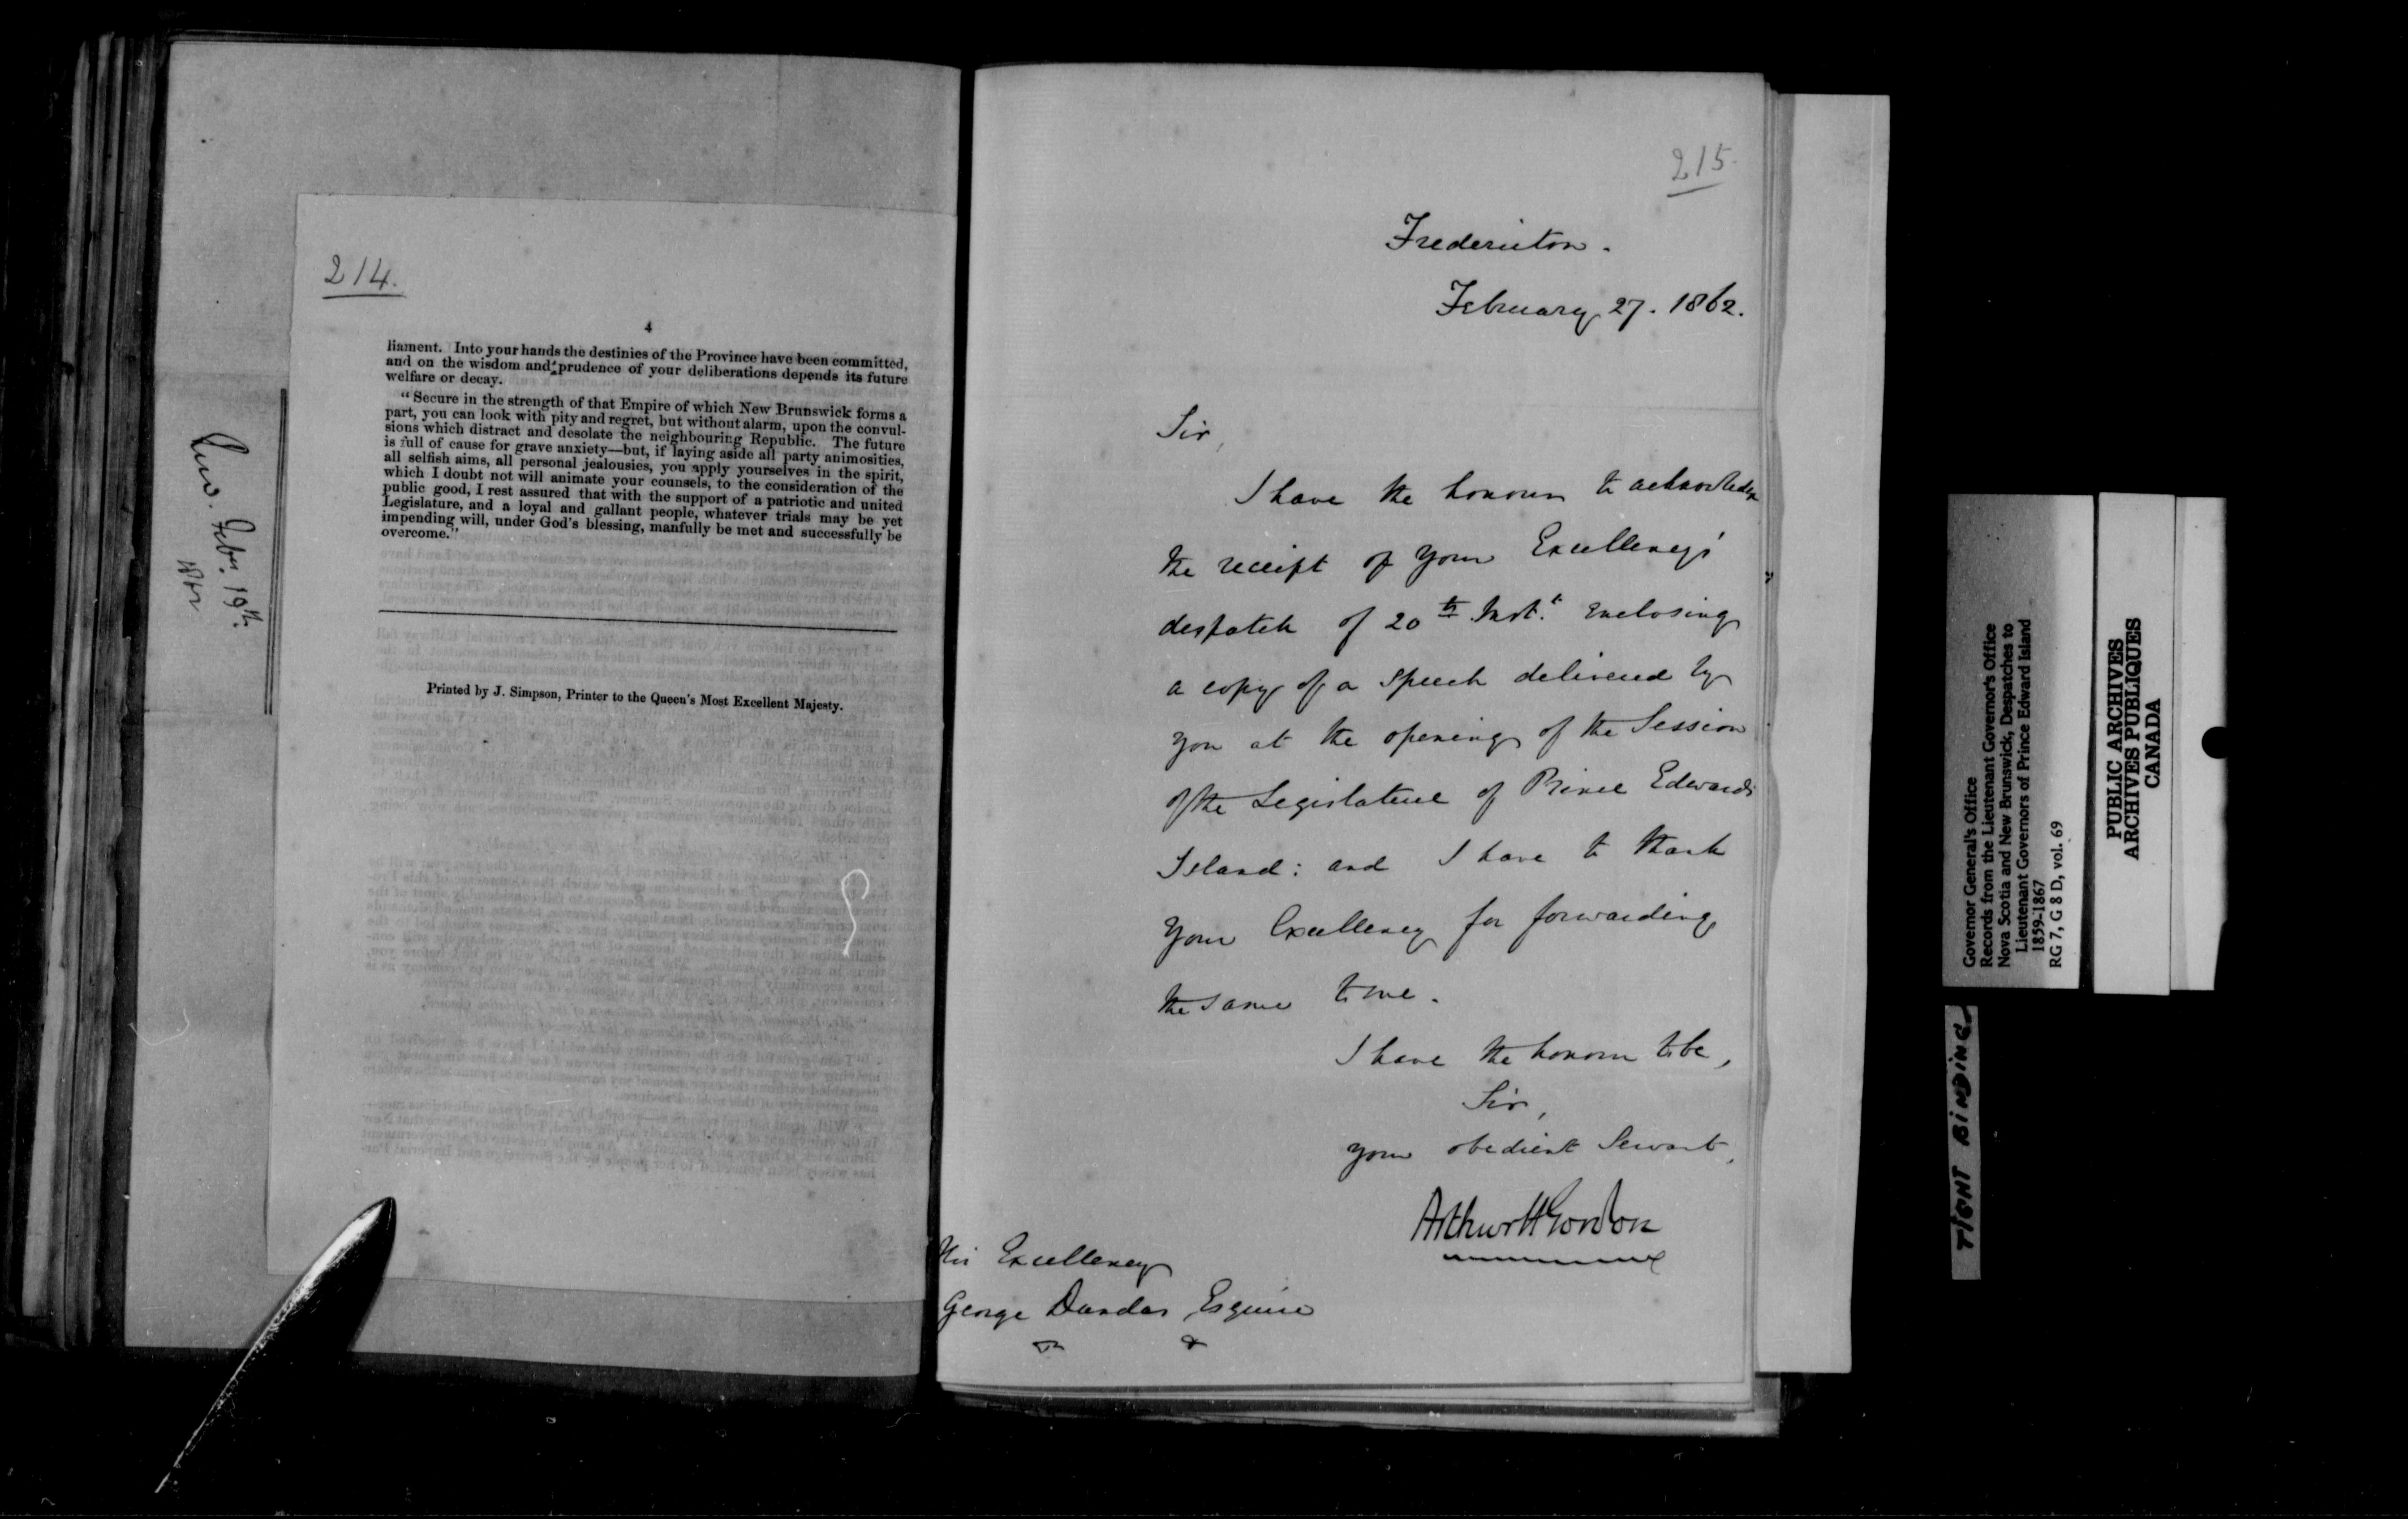 214.
4
liament. Into your hands the destinies of the Province have been committed,
and on the wisdom and prudence of your deliberations depends its future
welfare or decay.
"Secure in the strength of that Empire of which New Brunswick forms a
part, you can look with pity and regret, but without alarm, upon the convul-
sions which distract and desolate the neighbouring Republic. The future
is full of cause for grave anxiety—but, if laying aside all party animosities,
all selfish aims, all personal jealousies, you apply yourselves in the spirit,
which I doubt not will animate your counsels, to the consideration of the
public good, I rest assured that with the support of a patriotic and united
Legislature, and a loyal and gallant people, whatever trials may be yet
impending will, under God's blessing, manfully be met and successfully be
overcome."
Printed by J. Simpson, Printer to the Queen's Most Excellent Majesty.
Febr. 19th.
215
Fredericton.
February 27. 1862.
Sir,
I have the honour to acknowledge
the receipt of your Excellency's
despatch of 20th Inst. enclosing
a copy of a speech delivered by
you at the opening of the Session
of the Legislature of Prince Edward's
Island: and I have to thank
your Excellency for forwarding
the same to me.
I have the honour to be,
Sir,
your obedient Servant,
Arthur H Gordon
His Excellency
George Dundas Esquire
&c &c
Governor General's Office
Records from the Lieutenant Governor's Office
Nova Scotia and New Brunswick, Despatches to
Lieutenant Governors of Prince Edward Island
1859-1867
RG 7, G 8 D, vol. 69
PUBLIC ARCHIVES
ARCHIVES PUBLIQUES
CANADA
TIGHT BINDING